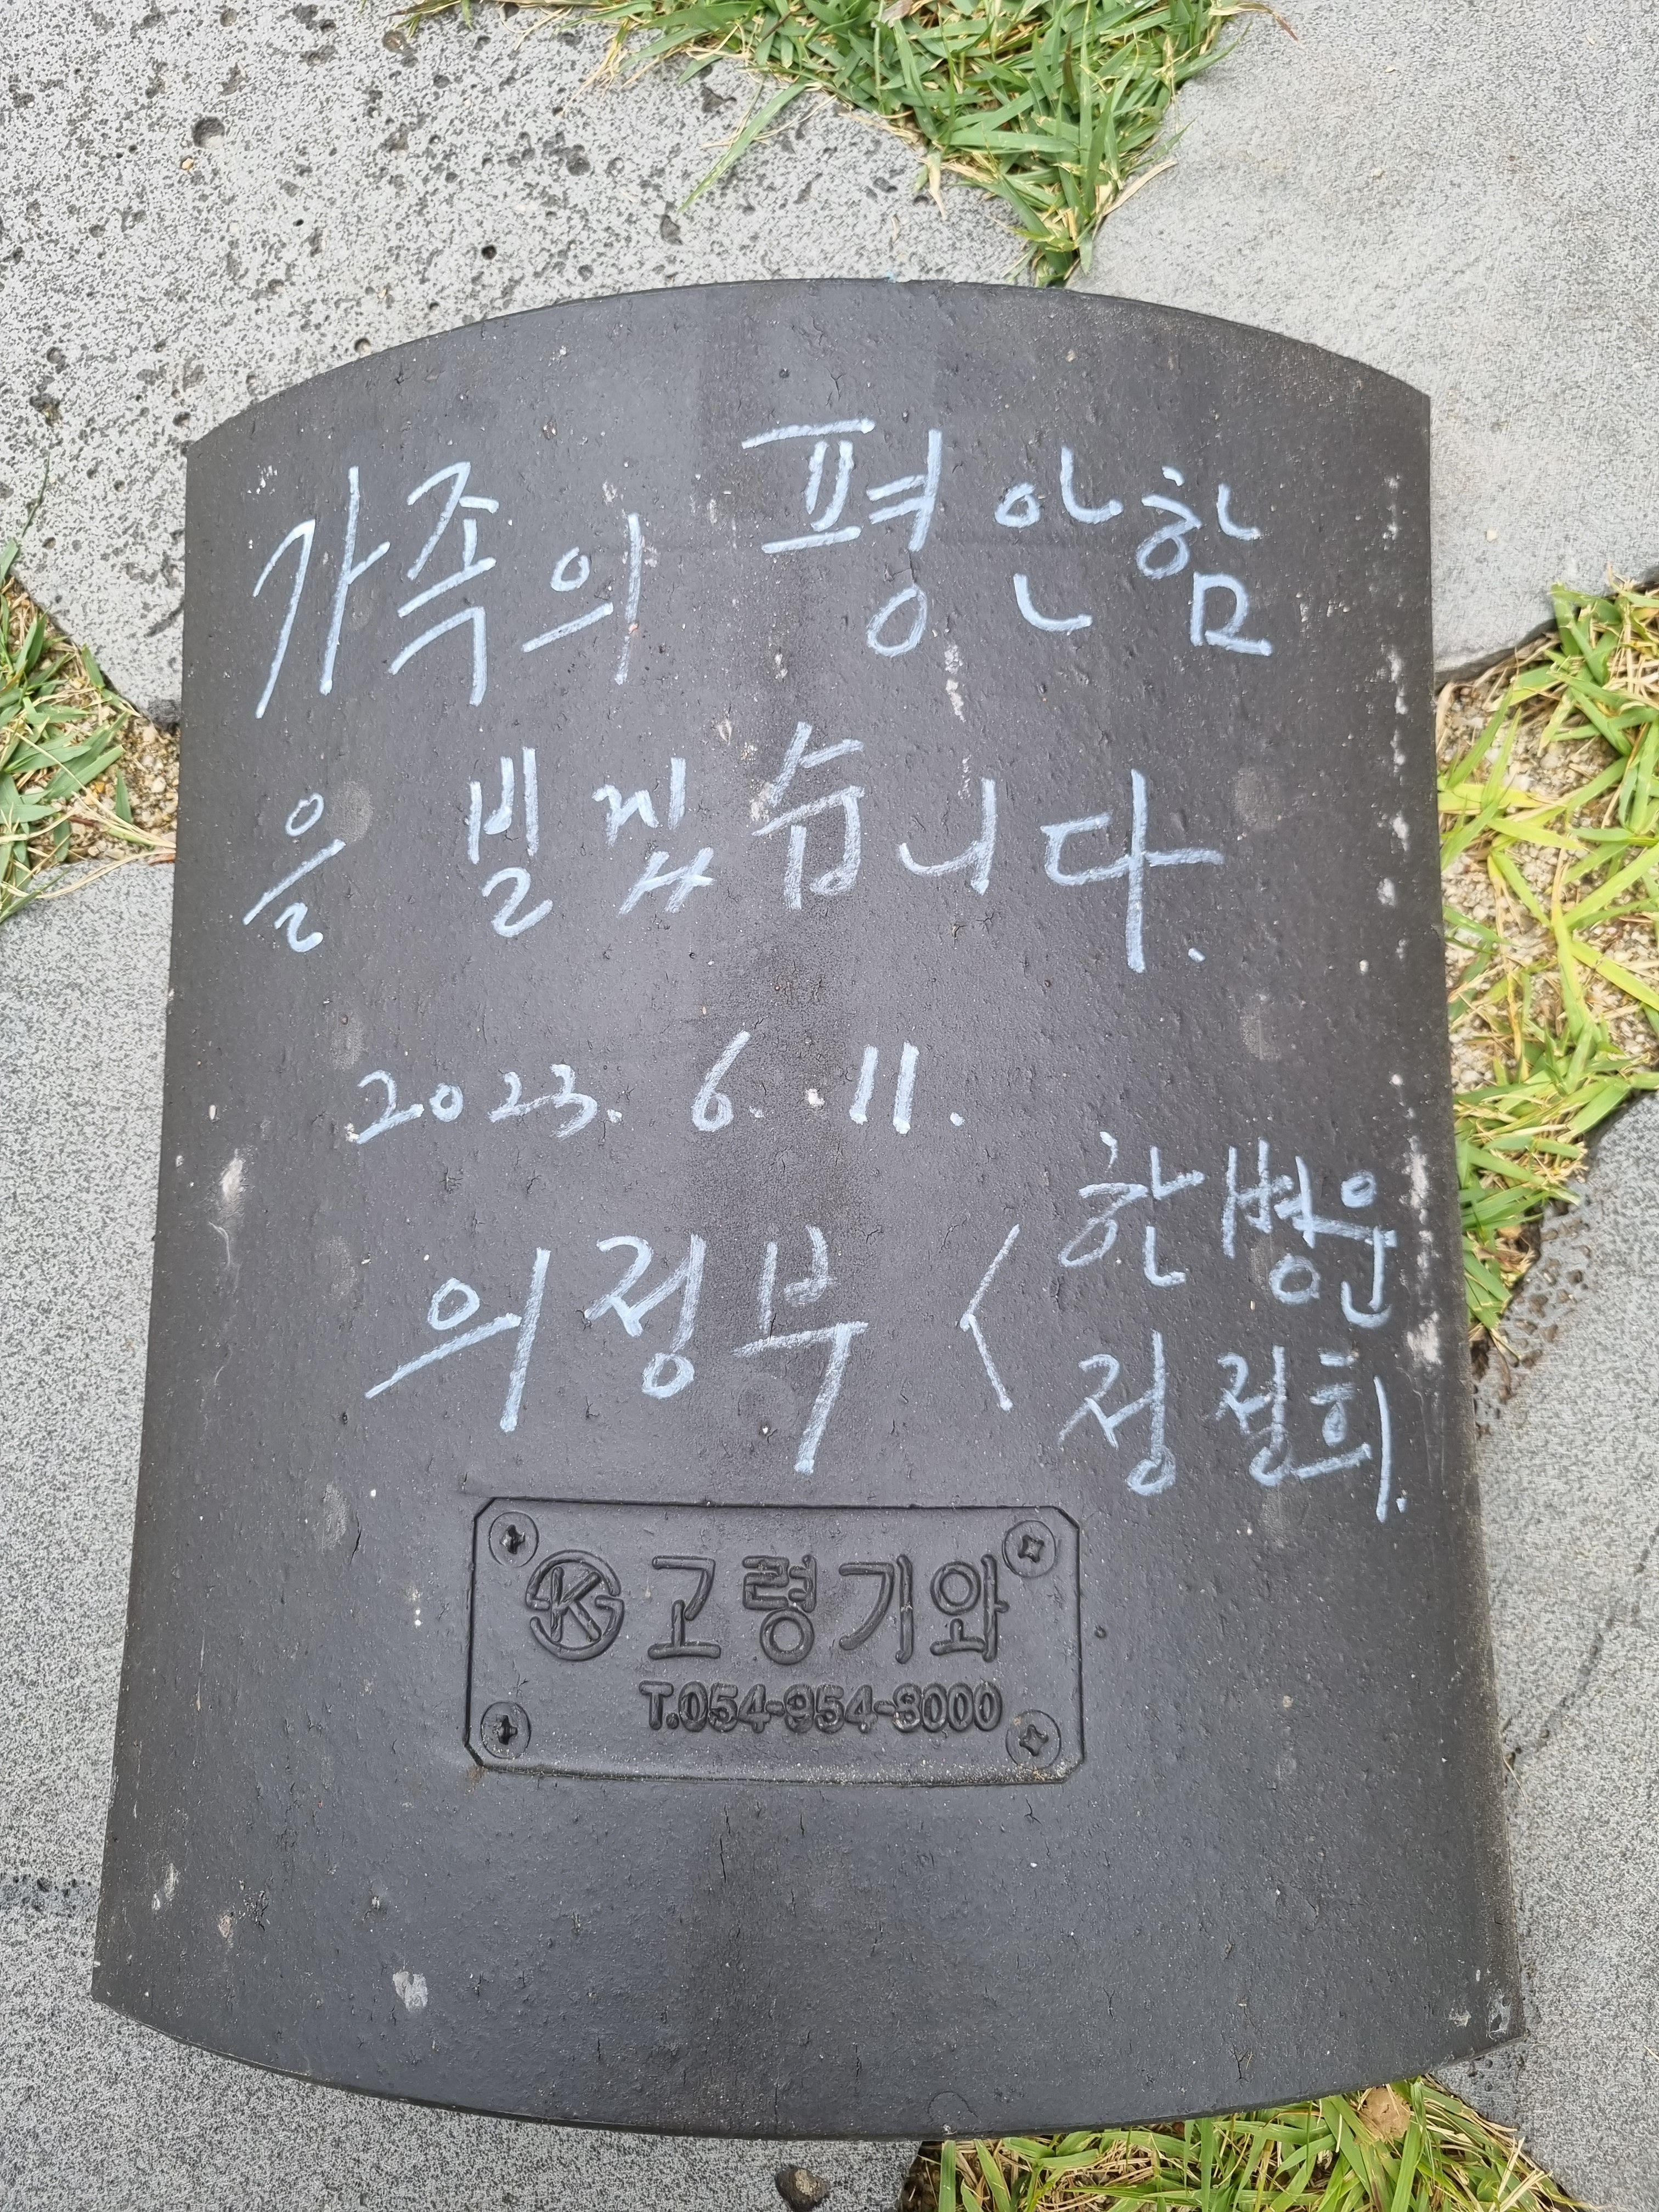 가족의 평안함
을 빌겠습니다.
2023. 6. 11.
의정부 < 한병윤
정절희.
K 고령기와
T.054-954-8000